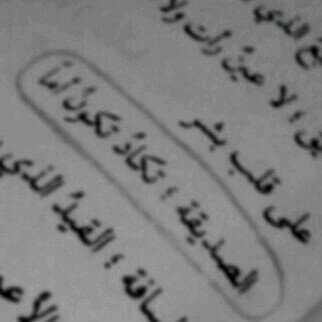 الذي
لا عينٌ رأت ولا
على قلب بشر
الصديقة ؛ تكادُ تكونُ أماً
؛ القيدُ الذي